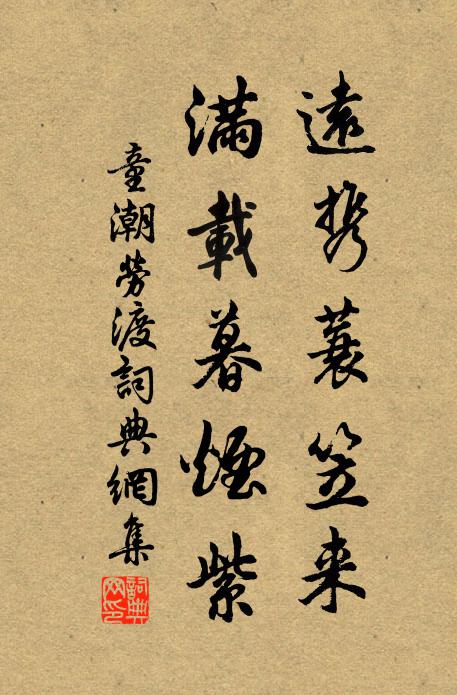 遠携蓑笠来
滿載暮煙紫
童潮勞渡詞典網集
詞典网印